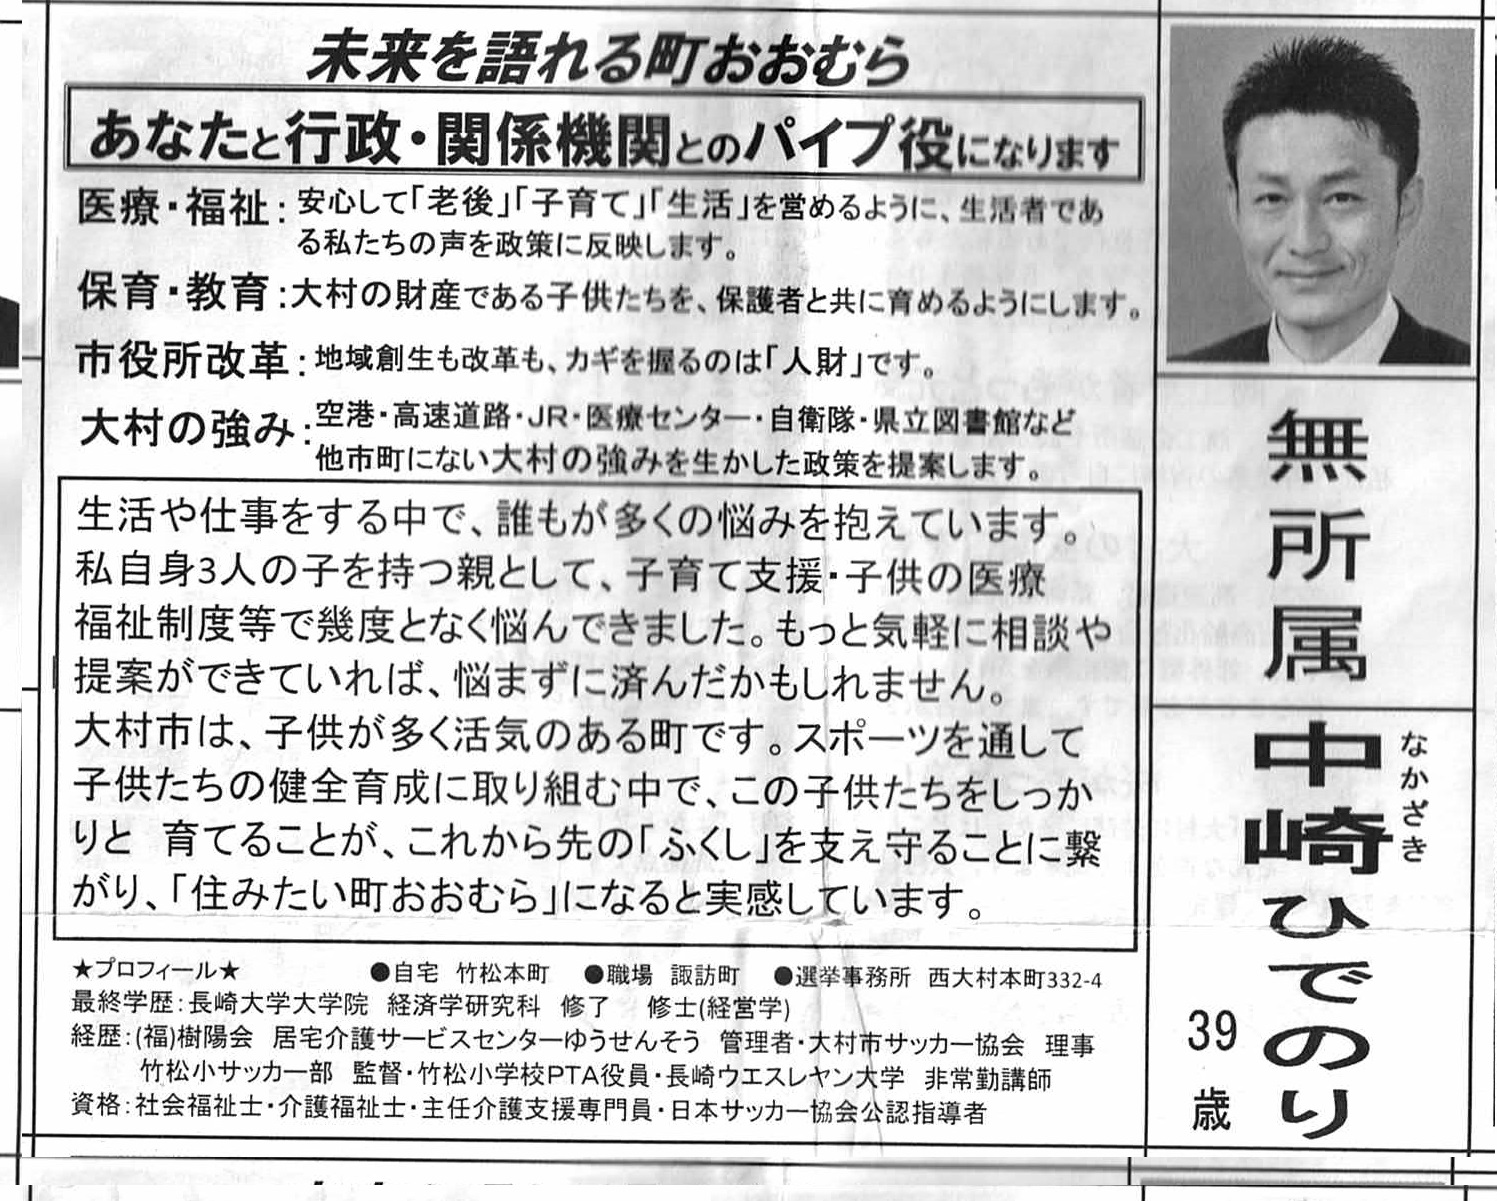 未来を語れる町おおむら
あなたと行政・関係機関とのパイプ役になります
医療・福祉:安心して「老後」「子育て」「生活」を営めるように、生活者であ
る私たちの声を政策に反映します。
保育・教育:大村の財産である子供たちを、保護者と共に育めるようにします。
市役所改革:地域創生も改革も、カギを握るのは「人財」です。
大村の強み:空港・高速道路・JR・医療センター・自衛隊・県立図書館など
他市町にない大村の強みを生かした政策を提案します。
生活や仕事をする中で、誰もが多くの悩みを抱えています。
私自身3人の子を持つ親として、子育て支援・子供の医療
福祉制度等で幾度となく悩んできました。もっと気軽に相談や
提案ができていれば、悩まずに済んだかもしれません。
大村市は、子供が多く活気のある町です。スポーツを通して
子供たちの健全育成に取り組む中で、この子供たちをしっか
りと 育てることが、これから先の「ふくし」を支え守ることに繋
がり、「住みたい町おおむら」になると実感しています。
★プロフィール★ ●自宅 竹松本町 ●職場 諏訪町 ●選挙事務所 西大村本町332-4
最終学歴:長崎大学大学院 経済学研究科 修了 修士(経営学)
経歴:(福)樹陽会 居宅介護サービスセンターゆうせんそう 管理者・大村市サッカー協会 理事
竹松小サッカー部 監督・竹松小学校PTA役員・長崎ウエスレヤン大学 非常勤講師
資格:社会福祉士・介護福祉士・主任介護支援専門員・日本サッカー協会公認指導者
無所属
中崎ひでのり
なかざき
39歳